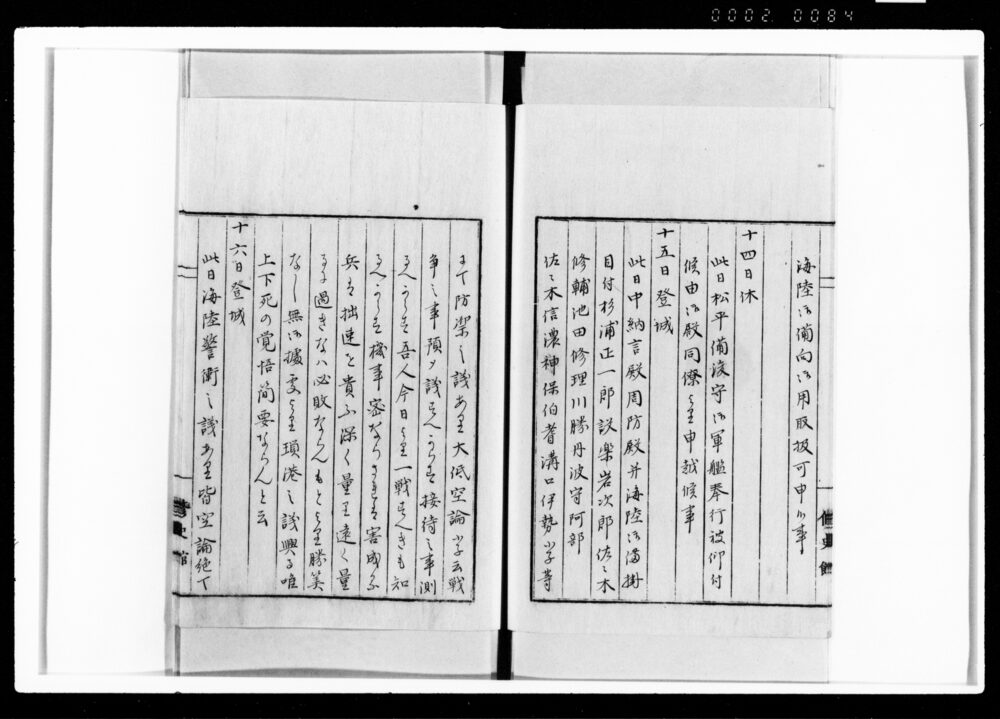 0002 0084
海陸御備向御用取扱可申事
十四日休
此日松平備後守御軍艦奉行被仰付
候由御殿同僚より申越候事
十五日登城
此日中納言殿周防殿并海陸御備掛
目付杉浦正一郎設楽岩次郎佐々木
修輔池田修理川勝丹波守阿部
佐々木信濃神保伯耆溝口伊勢小学等
修史館
にて防禦之議あり大低空論小学云戦
争之事預め議すへからす接待之事測
るへからす吾人今日より一戦すへきも知
るへからす機事密ならされは害成ル
兵は拙速を貴ふ深く量り遠く量
るに過きなハ必敗ならんもとより勝算
なし無御拠処より鎖港之議興る唯
上下死の覚悟簡要ならんと云
十六日登城
此日海陸警衛之議あり皆空論絶て
修史館